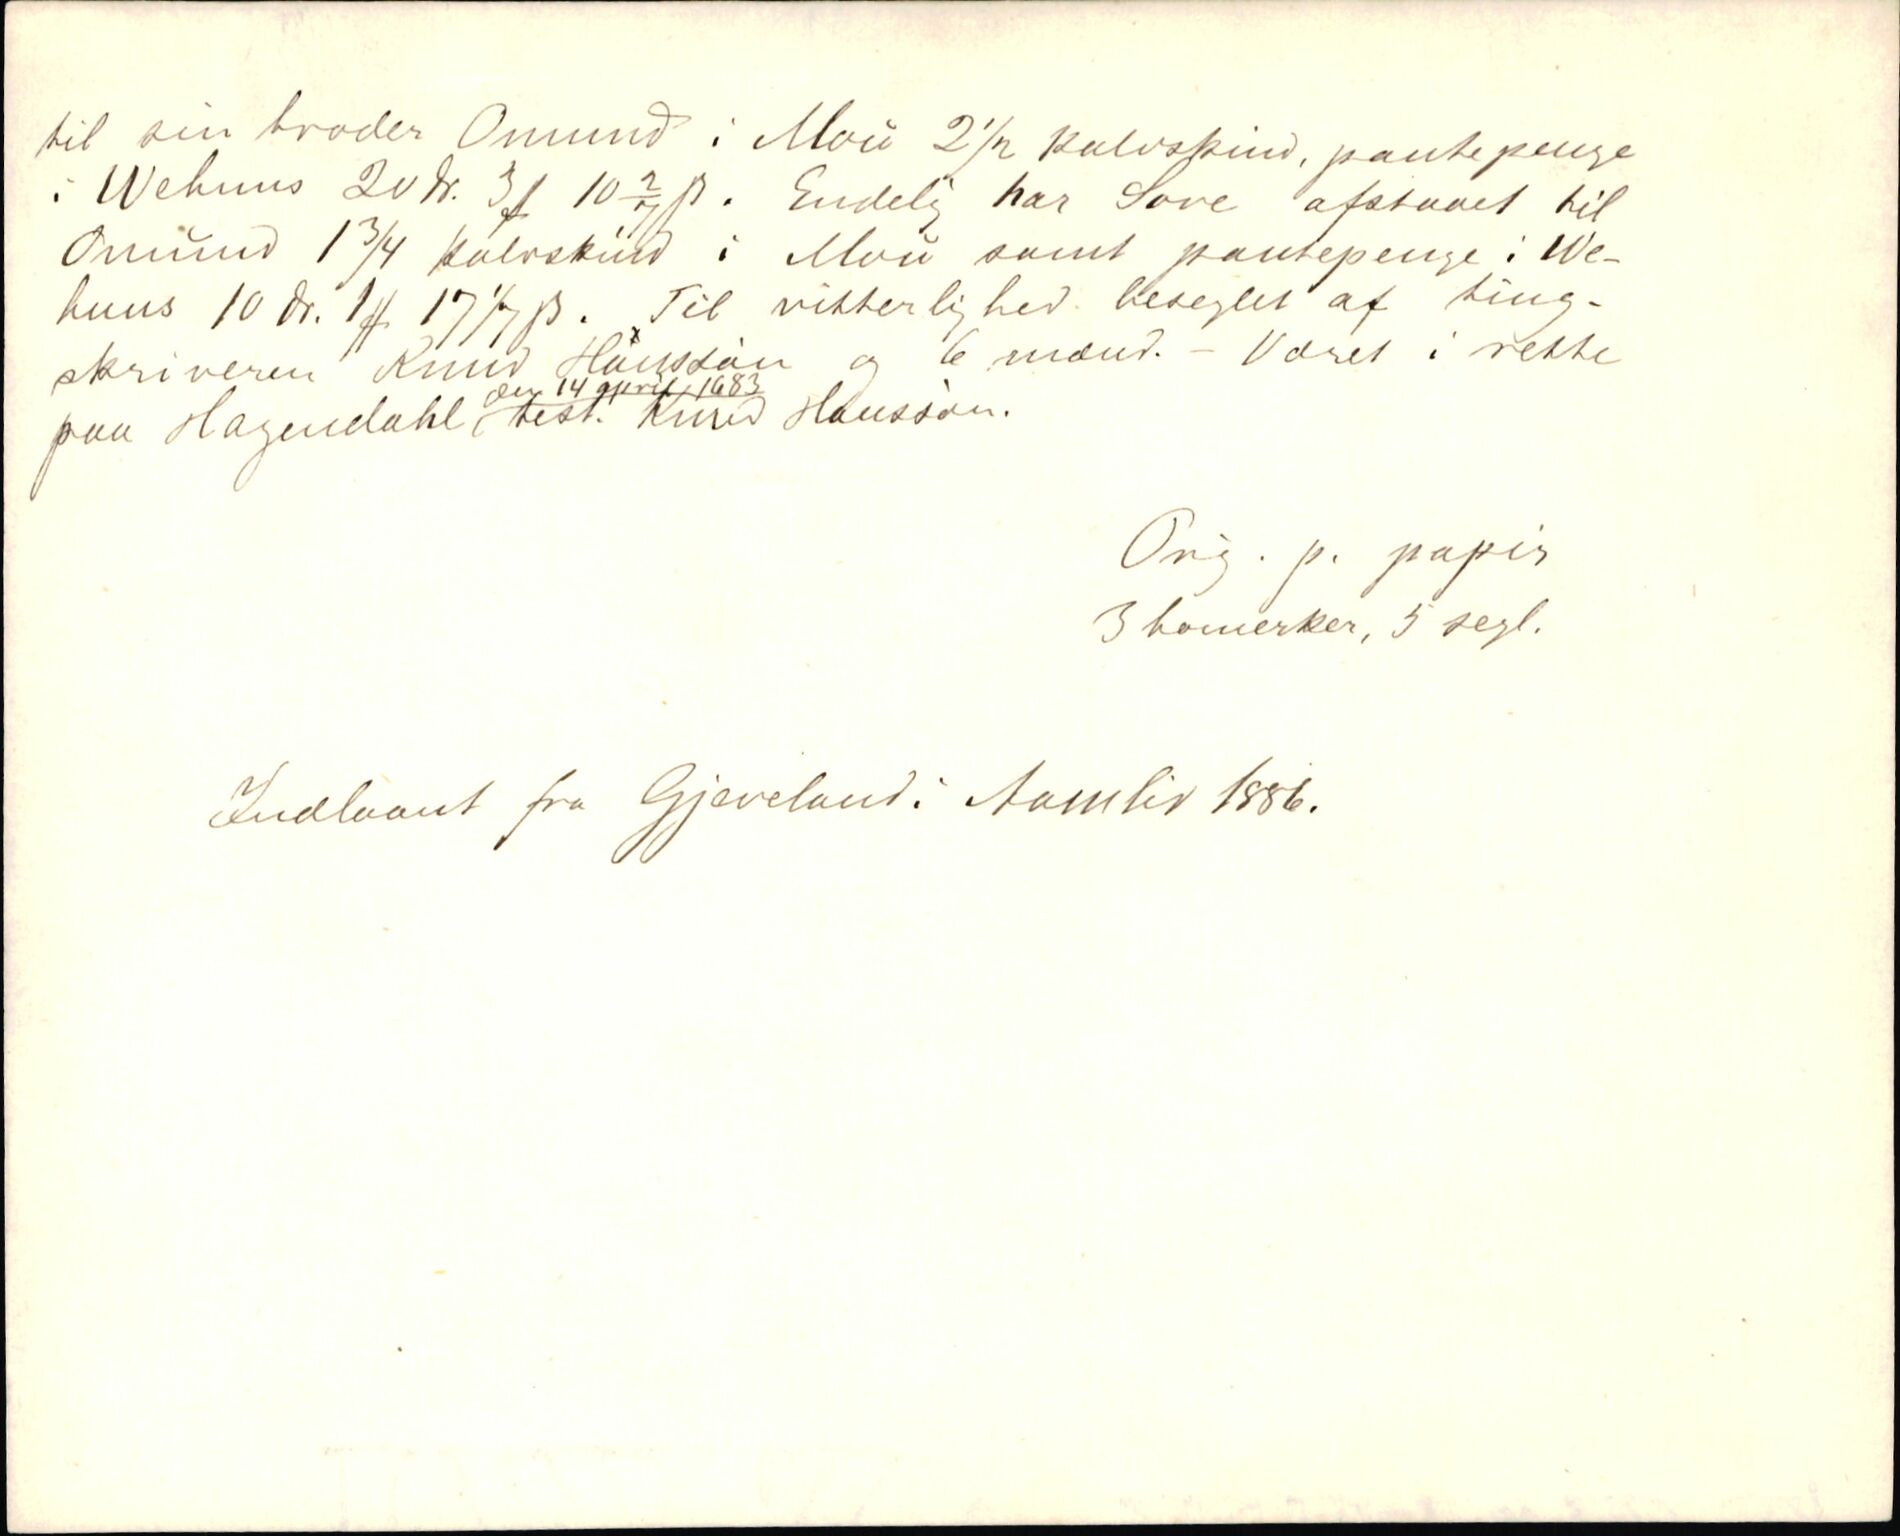 til sin broder Omund i Moü 2 1/2 kalvskind, pantepenge
i Wehuus 20 dr. 3 ƒ 10 2/7 β. Endelig har Sove afstaaet til
Omünd 1 3/4 kalvskind i Moü samt pantepenge i We-
huus 10 dr. 1 ƒ 17 1/7 β. Til vitterlighed beseglet af ting-
skriveren Knud Hånssøn og 6 mænd. - Været i rette
paa Hagendahl den 14 april 1683 test. Knud Hanssøn.
Orig. p. papir
3 bomerker, 5 segl.
Indlaant fra Gjeveland i Aamliv 1886.